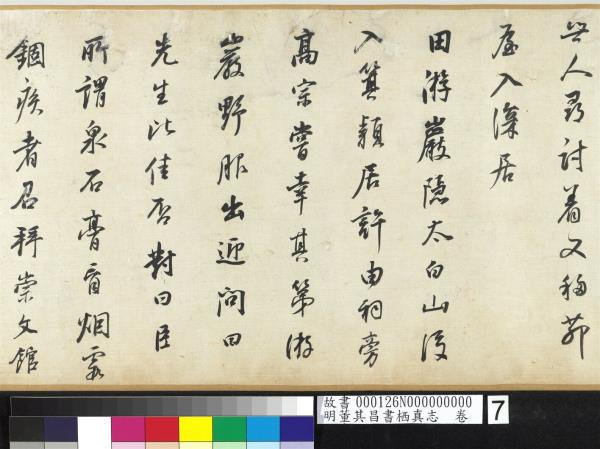 世人尋討着又移茆
屋入深居
田游巖隱太白山後
入箕頴居許由祠旁
高宗嘗幸其第游
巖野服出迎問曰
先生比佳否對曰臣
所謂泉石膏肓烟霞
錮疾者召拜崇文館
故書 000126N000000000
明董其昌書栖真志 卷
7